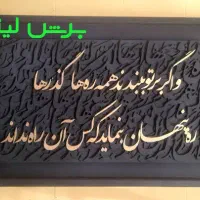 برش لیز
وگر بر تو ببندد همه ره‌ها و گذرها
ره پنهان بنماید که کس آن راه نداند